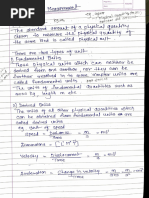 Measurement
The standard amount of a physical quantity
chosen to measure the physical quantity of
the same kind is called physical unit.
There are two types of unit.
1) Fundamental Units
Those physical units which can neither be
derived from one another, nor they can be
further resolved into more simpler units are
called fundamental units. Fundamental units such as
mass, kg, length, m etc
2) Derived Units
The units of all other physical quantities which
can be obtained from fundamental units are
called derived units
eg. Unit of speed
Speed = Distance / Time = m/s = ms⁻¹
Dimensions = [M⁰L¹T⁻¹]
Velocity = Displacement / Time = m/s = ms⁻¹
Acceleration = Change in velocity / time = m/s